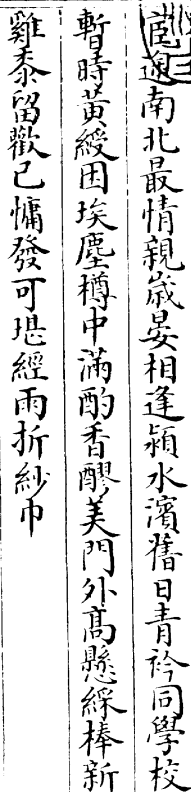 宦遊南北最情親歲晏相逢潁水濱舊日青衿同學校
暫時黃綬困埃塵樽中滿酌香醪美門外高懸綵棒新
雞黍留歡已慵發可堪經雨折紗巾